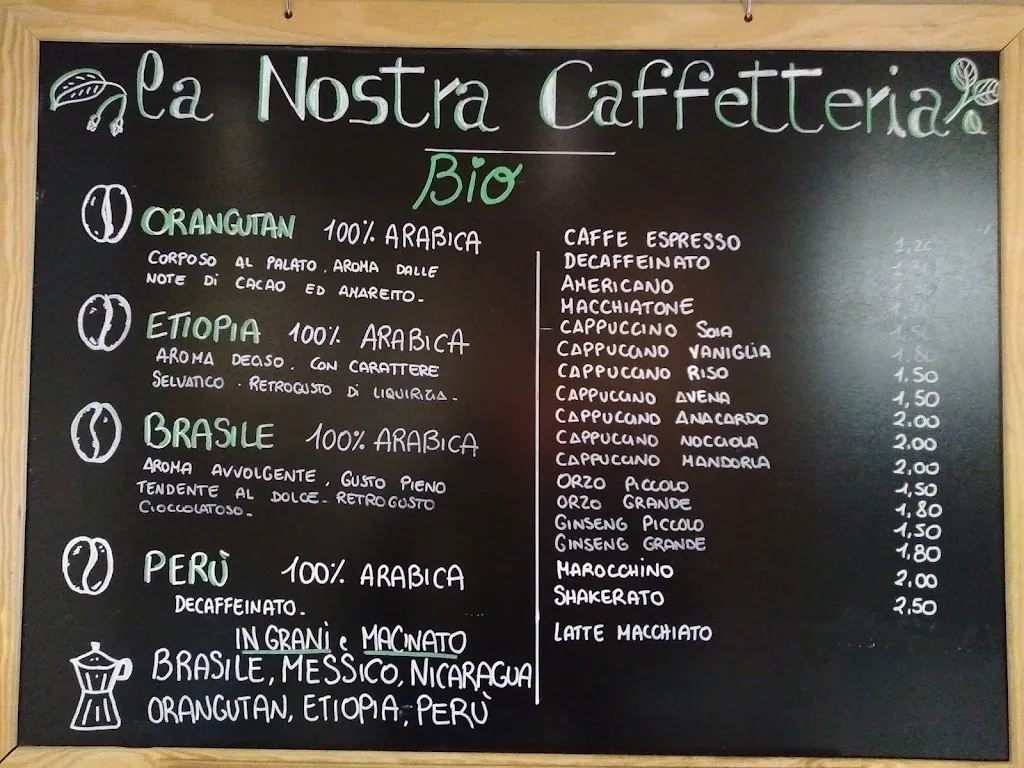 la Nostra Caffetteria
Bio
ORANGUTAN 100% ARABICA
CORPOSO AL PALATO. AROMA DALLE
NOTE DI CACAO ED AMARETTO.
ETIOPIA 100% ARABICA
AROMA DECISO. CON CARATTERE
SELVATICO. RETROGUSTO DI LIQUIRIZIA.
BRASILE 100% ARABICA
AROMA AVVOLGENTE, GUSTO PIENO
TENDENTE AL DOLCE. RETROGUSTO
CIOCCOLATOSO.
PERÙ 100% ARABICA
DECAFFEINATO.
IN GRANI e MACINATO
BRASILE, MESSICO, NICARAGUA
ORANGUTAN, ETIOPIA, PERÙ
CAFFE ESPRESSO 1,20
DECAFFEINATO
AMERICANO
MACCHIATONE
CAPPUCCINO SOIA 1.80
CAPPUCCINO VANIGLIA 1.80
CAPPUCCINO RISO 1.50
CAPPUCCINO AVENA 1,50
CAPPUCCINO ANACARDO 2.00
CAPPUCCINO NOCCIOLA 2.00
CAPPUCCINO MANDORLA 2,00
ORZO PICCOLO 1,50
ORZO GRANDE 1.80
GINSENG PICCOLO 1,50
GINSENG GRANDE 1,80
MAROCCHINO 2.00
SHAKERATO 2,50
LATTE MACCHIATO